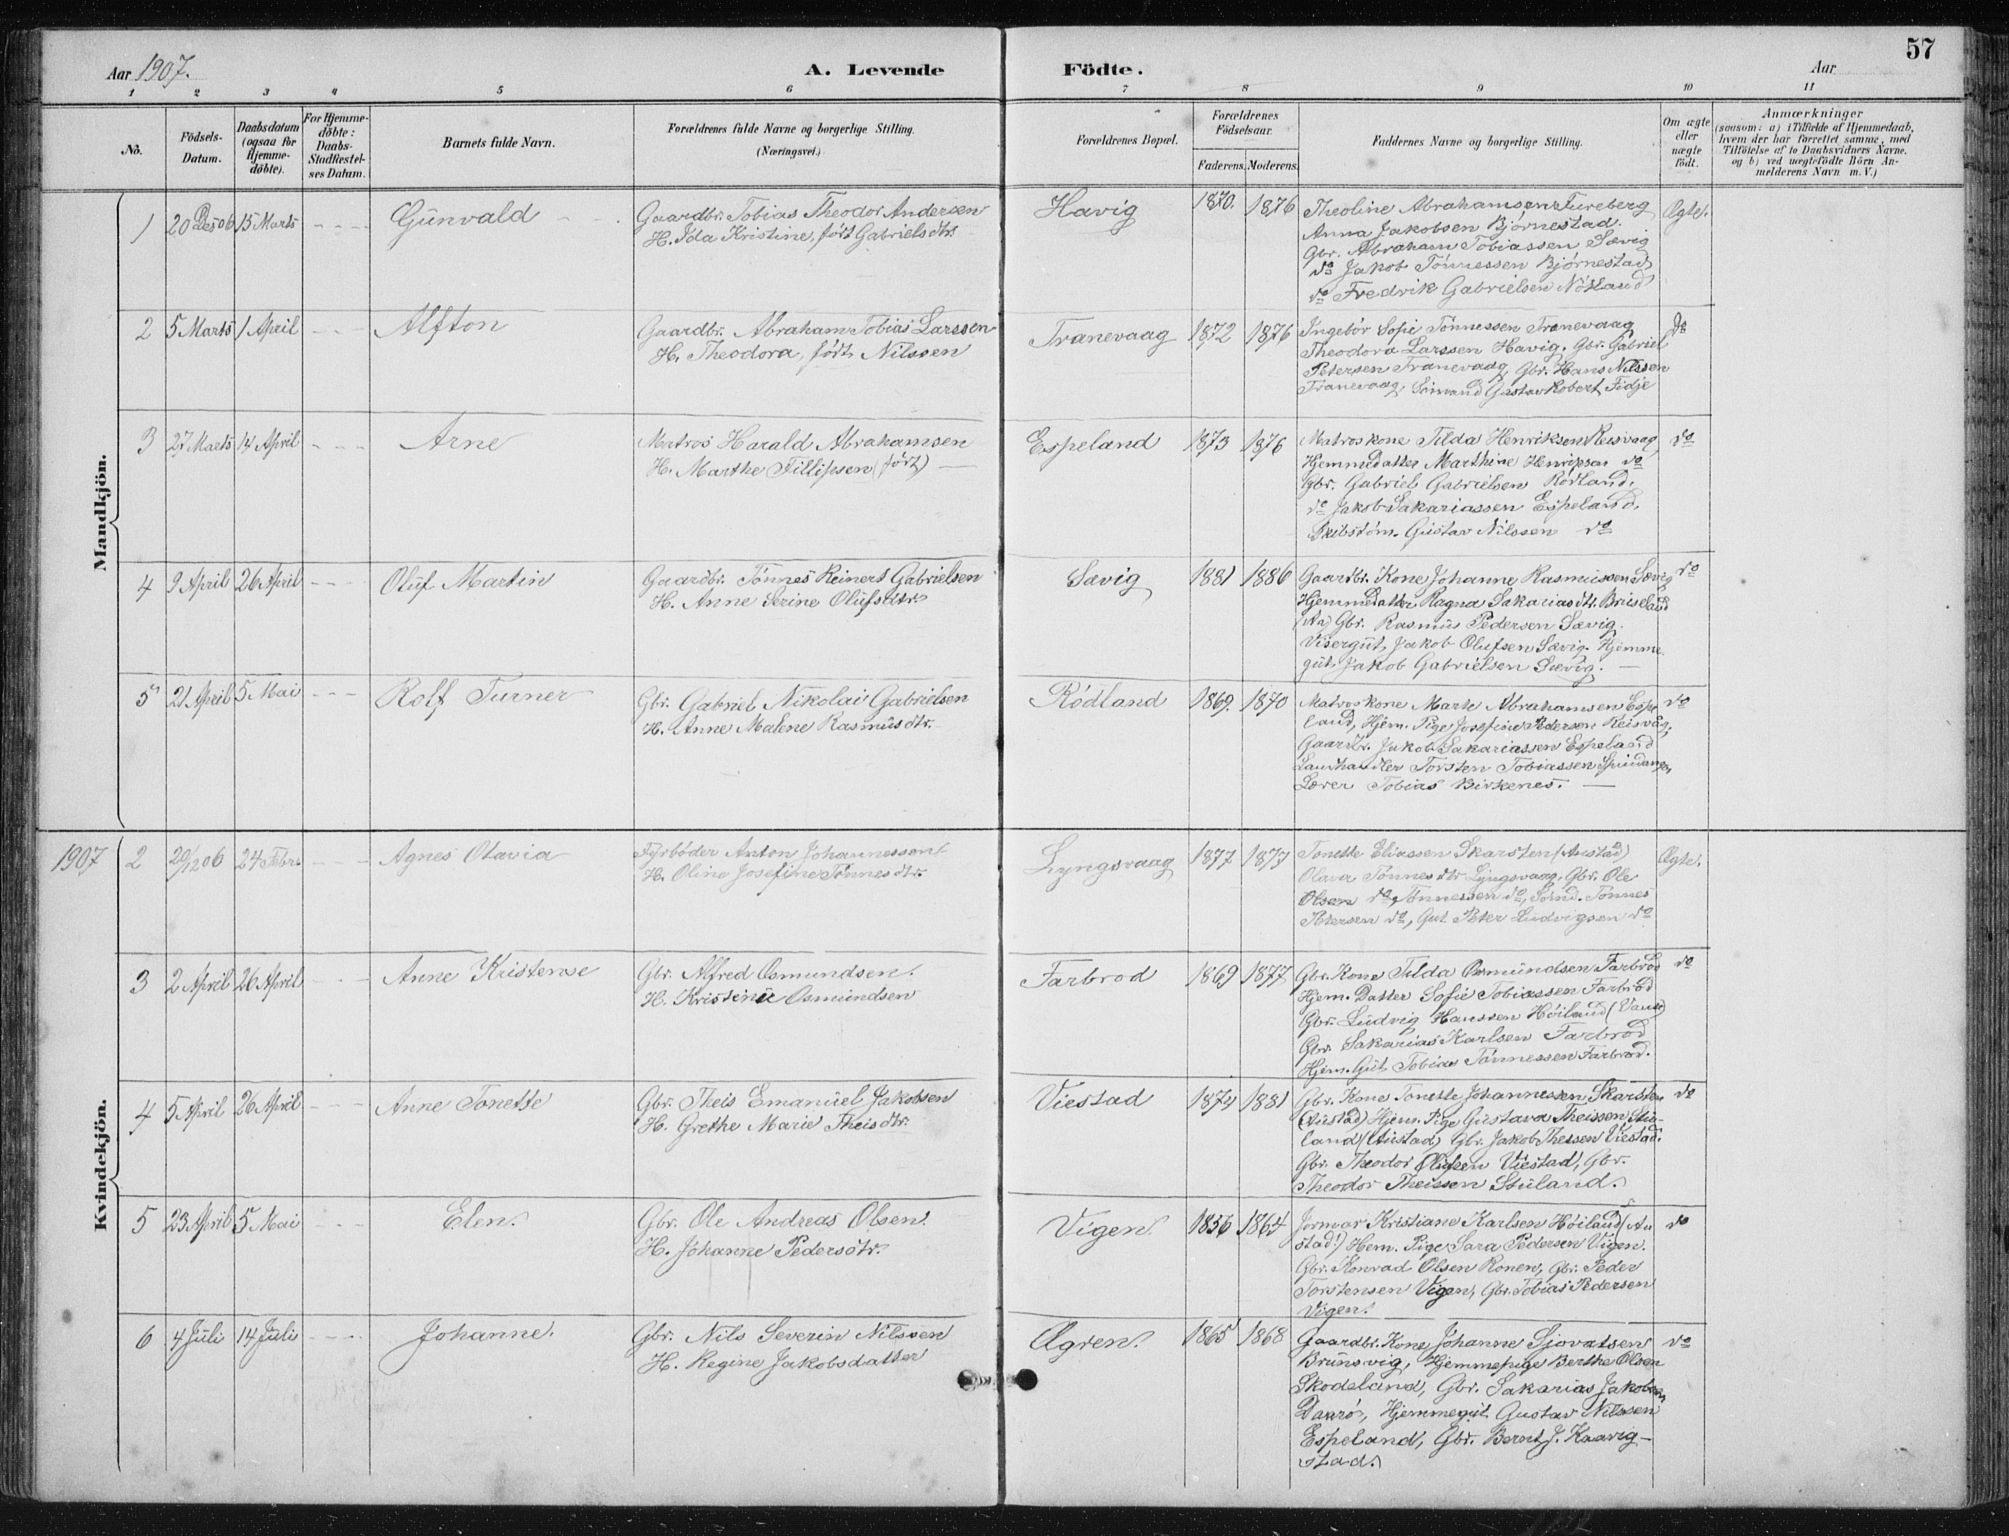 57
Aar 1907.
A. Levende Födte.
Aar
1 2 3 4 5 6 7 8 9 10 11
No.
Födsels-Datum.
Daabsdatum (ogsaa for Hjemme-döbte).
For Hjemme-döbte: Daabs-Stadfæstel-ses Datum.
Barnets fulde Navn.
Forældrenes fulde Navne og borgerlige Stilling.
(Næringsvei.)
Forældrenes Bopæl.
Forældrenes Födselsaar.
Faderens. Moderens.
Faddernes Navne og borgerlige Stilling.
Om ægte eller uægte födt.
Anmærkninger
(saasom: a) i Tilfælde af Hjemmedaab, hvem der har forrettet samme, med Tilföielse af to Daabsvidners Navne, og b) ved uægtefödte Börn An-melderens Navn m. V.)
Mandkjön.
1 20 Des 06 15 Marts Gunvald
Gaardbr. Tobias Theodor Andersen
H. Ida Kristine, født Gabrielsdtr.
Havig 1870 1876
Theoline Abrahamsen Tureberg
Anna Jakobsen Bjørnestad.
Gbr. Abraham Tobiassen Sævig
do Jakob Tønnessen Bjørnestad
do Fredrik Gabrielsen Nøtland
Ægte.
2 5 Marts 1 April Alfton
Gaardbr. Abraham Tobias Larssen
H. Theodora, født Nilssen
Tranevaag 1872 1876
Ingebor Sofie Tønnessen Tranevaag
Theodora Larssen Havig. Gbr. Gabriel
Petersen Tranevaag, Gbr. Hans Nilssen
Tranevaag, Sømand Gustav Robert Fidje
do
3 27 Marts 14 April Arne
Matros Harald Abrahamsen
H. Marthe Fillipsen (født)
Espeland 1873 1876
Matroskone Tilda Henriksen Reisvaag
Hjemmedatter Marthine Henriksen do
Gbr. Gabriel Gabrielsen Rødland.
do Jakob Sakariassen Espeland.
Skibstøm. Gustav Nilssen do
do
4 9 April 26 April Oluf Martin
Gaardbr. Tønnes Reinert Gabrielsen
H. Anne Serine Olufsdtr.
Sævig 1881 1886
Gaardbr. Kone Johanne Rasmussen Sævig
Hjemmedatter Ragna Sakariasdtr. Briseland
(Au) Gbr. Rasmus Pedersen Sævig.
Visergut Jakob Olufsen Sævig. Hjemme
gut Jakob Gabrielsen Sævig.
do
5 21 April 5 Mai Rolf Turner
Gbr. Gabriel Nikolai Gabrielsen
H. Anne Malene Rasmusdtr.
Rødland 1869. 1870
Matroskone Marte Abrahamsen Espe
land, Hjem. Pige Josefine Pedersen Reisvåg,
Gaardbr. Jakob Sakariassen Espeland
Landhandler Torsten Tobiassen Spindangen,
Lærer Tobias Birkenes.
do
Kvindekjön.
1907 2 29/12 06 24 Febr. Agnes Otavia
Fyrbøder Anton Johannessen
H. Oline Josefine Tønnesdtr.
Lyngsvaag 1877 1877
Tonette Eliassen Skarsten (Austad)
Olava Tønnesdtr Lyngsvaag. Gbr. Ole
Olsen do, Tønnessen do, Sømd. Tønnes
Petersen do, Gut Peter Ludvigsen do
Ægte.
3 2 April 26 April Anne Kristense
Gbr. Alfred Osmundsen.
H. Kristine Osmundsen
Farbrod 1869 1877
Gbr. Kone Tilda Osmundsen Farbrod
Hjem. Datter Sofie Tobiassen Farbrod
Gbr. Ludvig Hanssen Høiland (Vanse)
Gbr. Sakarias Karlsen Farbrod
Hjem. Gut Tobias Tønnessen Farbrod.
do
4 5 April 26 April Anne Tonette
Gbr. Theis Emanuel Jakobsen
H. Grethe Marie Theisdtr.
Viestad 1874 1881
Gbr. Kone Tonette Johannessen Skarsten
(Austad) Hjem. Pige Gustava Theissen Stu-
land (Austad) Gbr. Jakob Thessen Viestad.
Gbr. Theodor Olufsen Viestad, Gbr.
Theodor Theissen Stuland.
do
5 23 April 5 Mai Elen.
Gbr. Ole Andreas Olsen.
H. Johanne Pedersdtr.
Vigen 1856 1864
Jormor Kristiane Karlsen Høiland (Au
stad!) Hem. Pige Sara Pedersen Vigen.
Gbr. Konrad Olsen Ronen, Gbr. Peder
Torstensen Vigen, Gbr. Tobias Pedersen
Vigen.
do
6 4 Juli 14 Juli Johanne.
Gbr. Nils Severin Nilssen
H. Regine Jakobsdatter
Ægren. 1865 1868
Gaardbr. Kone Johanne Sjovatsen
Brunsvig, Hjemmepige Berthe Olsen
Skodeland, Gbr. Sakarias Jakobsen,
Daarø, Hjemmegut Gustav Nilssen
Espeland, Gbr. Bernt J. Kaavig-
stad.
do